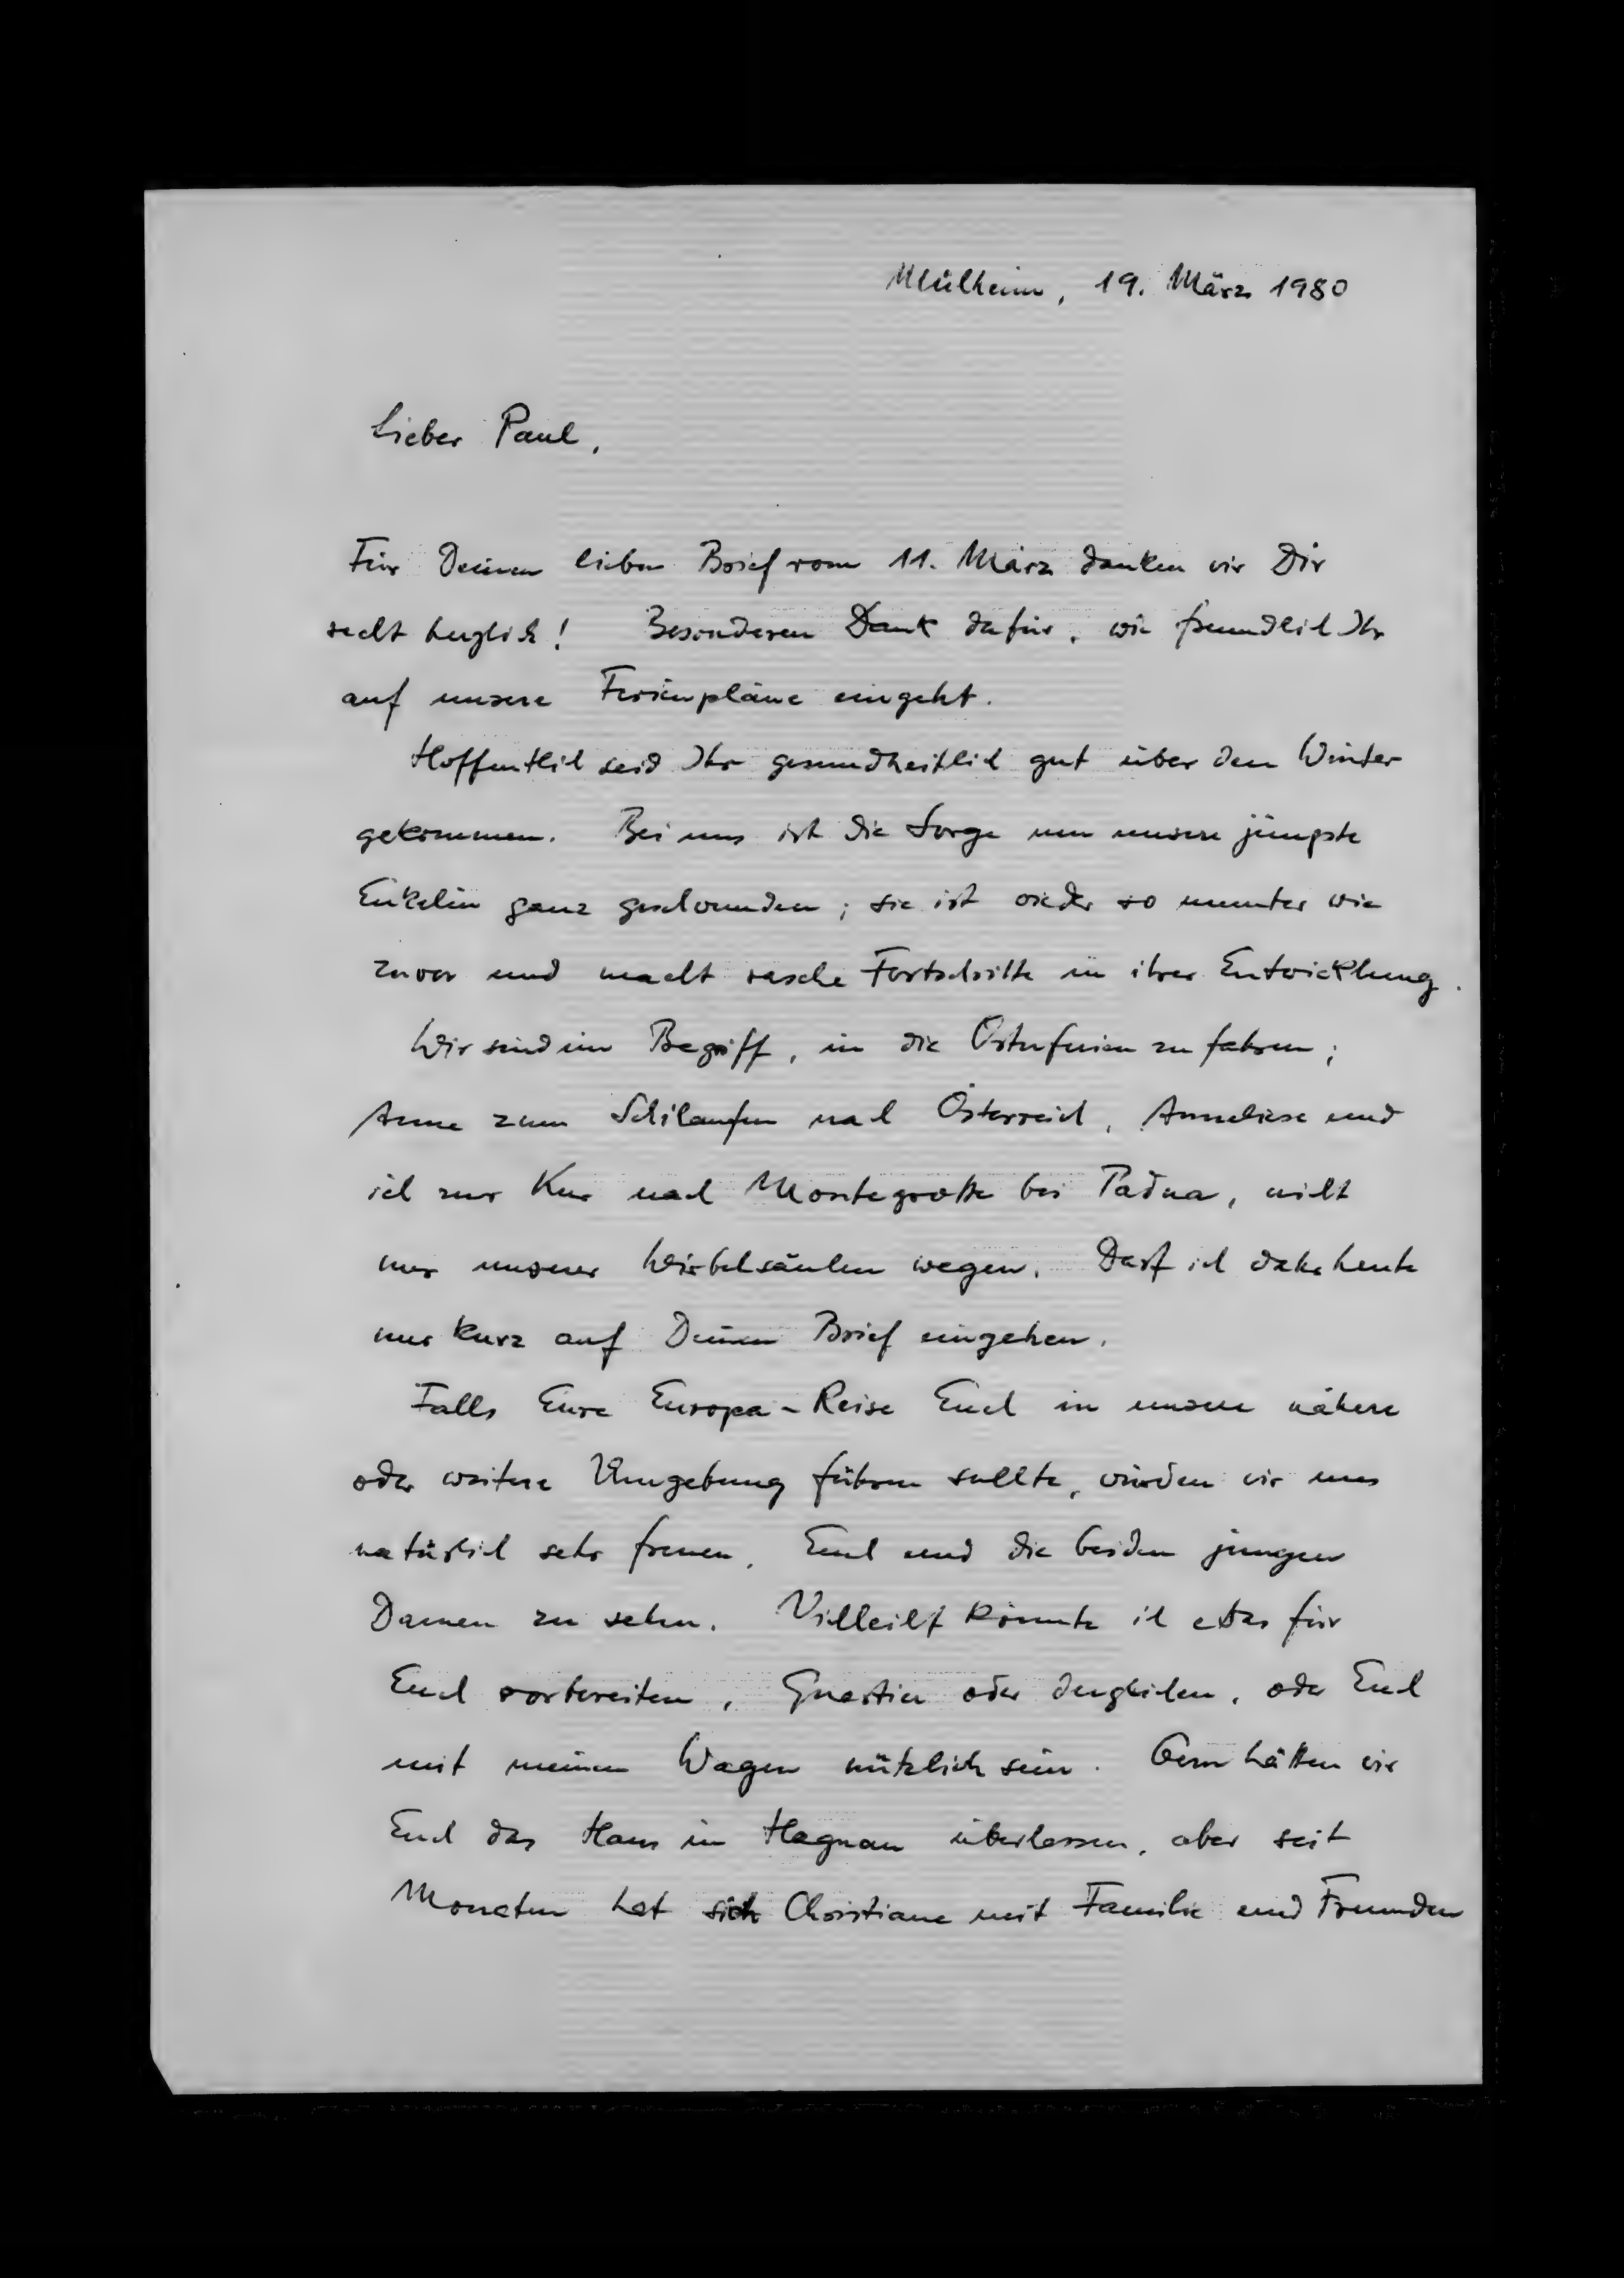 Mülheim, 19. März 1980
Lieber Paul,
Für Deinen lieben Brief vom 11. März danken wir Dir
recht herzlich! Besonderen Dank dafür, wie freundlich Ihr
auf unsere Ferienpläne eingeht.
Hoffentlich seid Ihr gesundheitlich gut über den Winter
gekommen. Bei uns ist die Sorge um unsere jüngste
Enkelin ganz geschwunden; sie ist wieder so munter wie
zuvor und macht rasche Fortschritte in ihrer Entwicklung.
Wir sind im Begriff, in die Osterferien zu fahren;
Anne zum Schilaufen nach Österreich, Anneliese und
ich zur Kur nach Montegrotto bei Padua, nicht
nur unserer Wirbelsäulen wegen. Darf ich daher heute
nur kurz auf Deinen Brief eingehen.
Falls Eure Europa-Reise Euch in unsere nähere
oder weitere Umgebung führen sollte, würden wir uns
natürlich sehr freuen, Euch und die beiden jungen
Damen zu sehen. Vielleicht könnte ich etwas für
Euch vorbereiten, Quartier oder dergleichen, oder Euch
mit meinem Wagen nützlich sein. Gern hätten wir
Euch das Haus in Hagnau überlassen, aber seit
Monaten hat sich Christiane mit Familie und Freunden